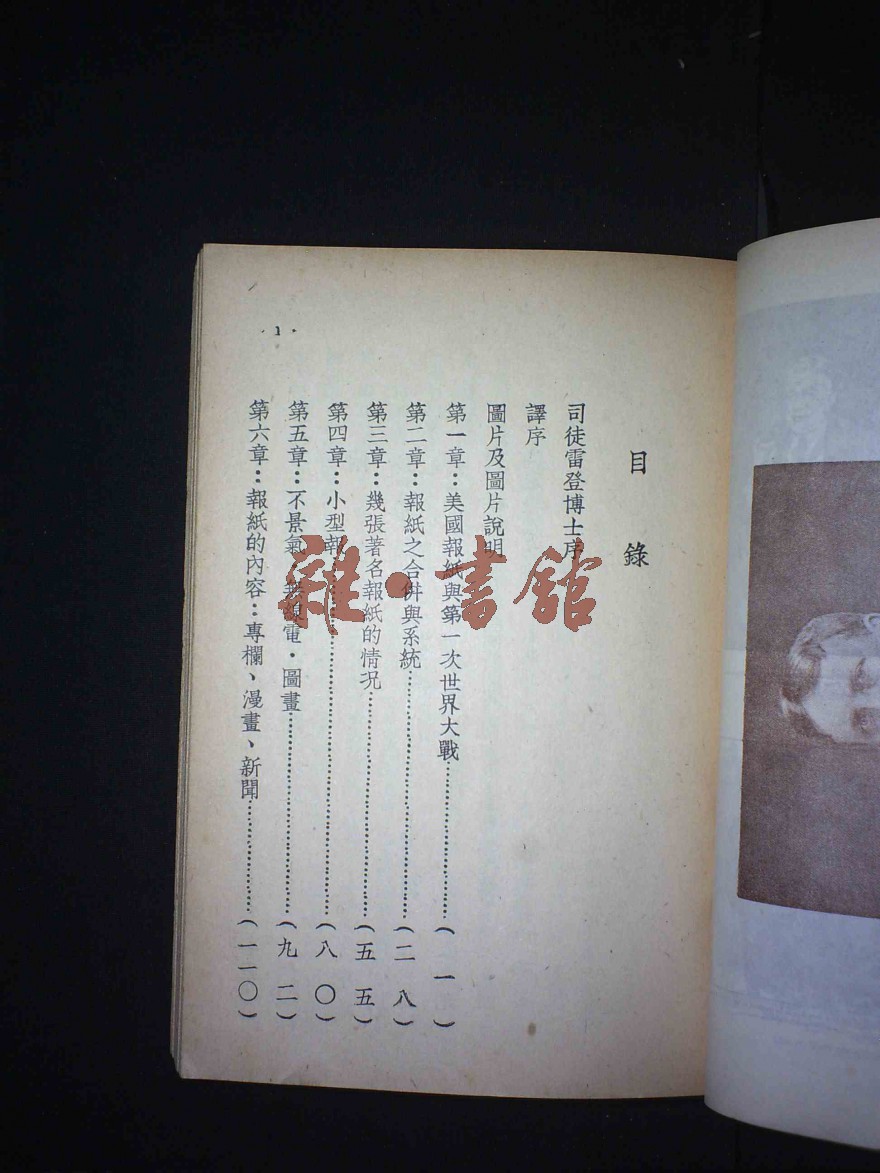 目錄
司徒雷登博士序
譯序
圖片及圖片說明
第一章：美國報紙與第一次世界大戰……(一)
第二章：報紙之合併與系統……(二八)
第三章：幾張著名報紙的情況……(五五)
第四章：小型報……(八〇)
第五章：不景氣・無線電・圖畫……(九二)
第六章：報紙的內容：專欄、漫畫、新聞……(一一〇)
・1・
雜・書館